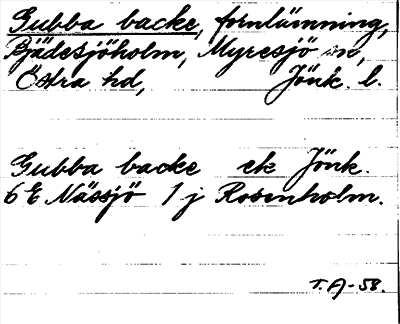 Gubba backe, fornlämning,
Bjädesjöholm, Myresjö sn,
Östra hd, Jönk. l.
Gubba backe ek Jönk.
6 E Nässjö 1 j Rosenholm.
T. A-58.